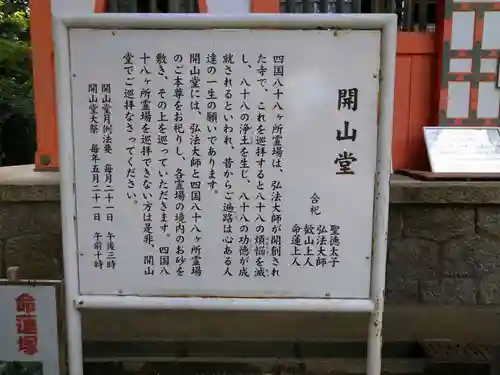 開山堂
合祀
聖徳太子
弘法大師
叡山上人
命蓮上人
四国八十八ヶ所霊場は、弘法大師が開創され
た寺で、これを巡拝すると八十八の煩悩を滅
し、八十八の浄土を生じ、八十八の功徳が成
就されるといわれ、昔からご遍路は心ある人
達の一生の願いであります。
開山堂には、弘法大師と四国八十八ヶ所霊場
のご本尊をお祀りし、各霊場の境内のお砂を
敷き、その上を巡っていただきます。四国八
十八ヶ所霊場を巡拝できない方は是非、開山
堂でご巡拝なさってください。
開山堂月例法要 毎月二十一日 午後三時
開山堂大祭 毎年五月二十一日 午前十時
命蓮塚